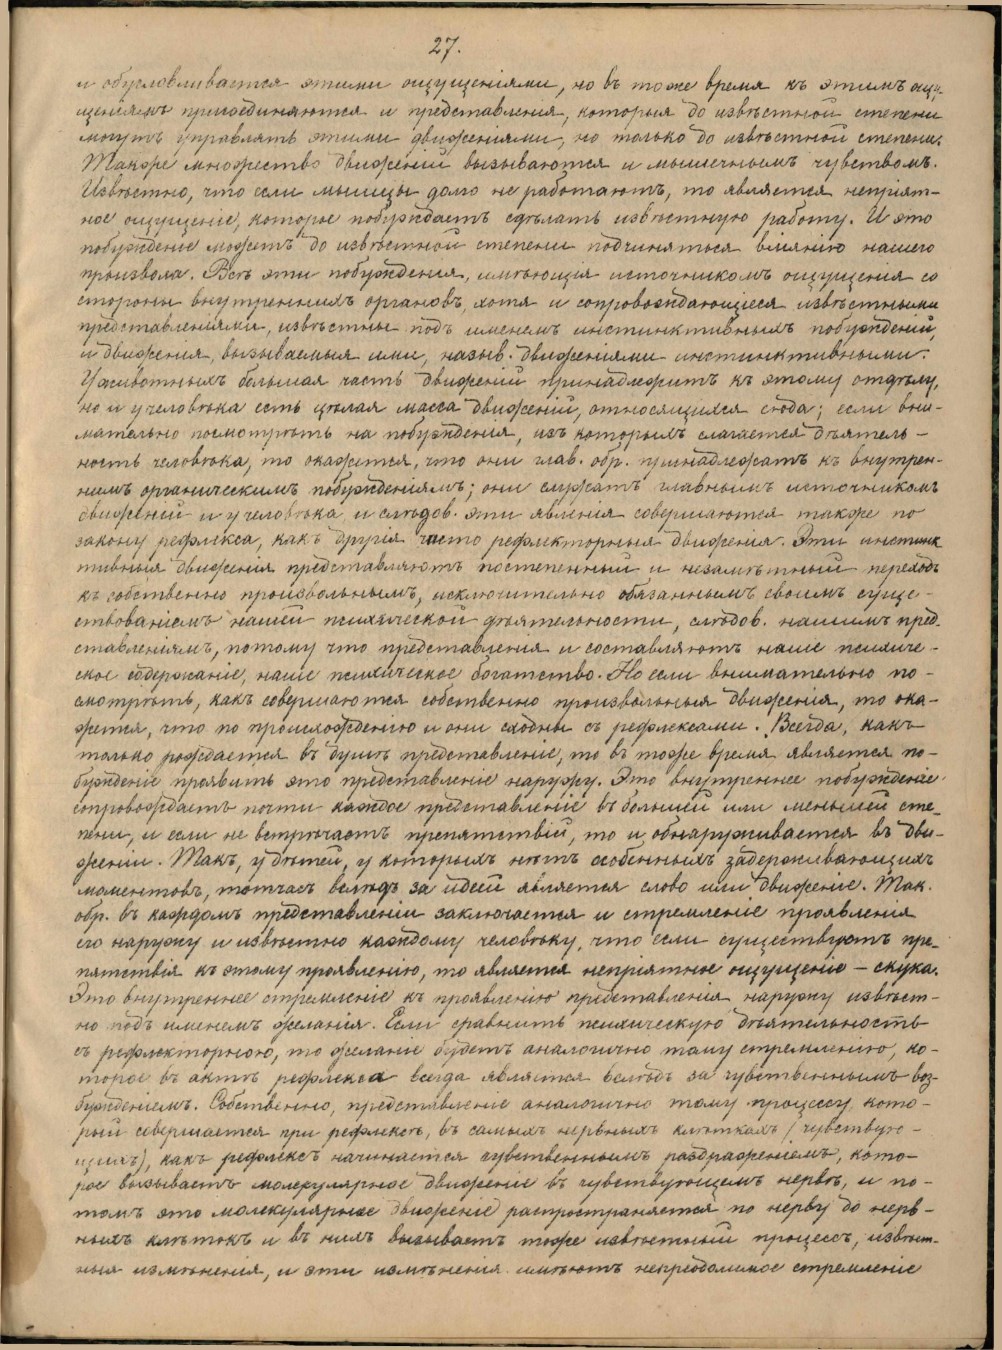 27.
и обусловливается этими ощущеніями, но въ тоже время къ этимъ ощу-
щеніямъ присоединяются и представленія, которыя до извѣстной степени
могутъ управлять этими движеніями, но только до извѣстной степени.
Также множество движеній вызываются и мышечнымъ чувствомъ.
Извѣстно, что если мышцы долго не работаютъ, то является непріят-
ное ощущеніе, которое побуждаетъ сдѣлать извѣстную работу. И это
побужденіе можетъ до извѣстной степени подчиняться вліянію нашего
произвола. Всѣ эти побужденія, имѣющія источникомъ ощущенія со
стороны внутреннихъ органовъ, хотя и сопровождающіеся извѣстными
представленіями, извѣстны подъ именемъ инстинктивныхъ побужденій,
и движенія, вызываемыя ими, назыв. движеніями инстинктивными.
У животныхъ большая часть движеній принадлежитъ къ этому отдѣлу,
но и у человѣка есть цѣлая масса движеній, относящихся сюда; если вни-
мательно посмотрѣть на побужденія, изъ которыхъ слагается дѣятель-
ность человѣка, то окажется, что они глав. обр. принадлежатъ къ внутрен-
нимъ органическимъ побужденіямъ; они служатъ главнымъ источникомъ
движеній и у человѣка и слѣдов. эти явленія совершаются также по
закону рефлекса, какъ другія чисто рефлекторныя движенія. Эти инстинк
тивныя движенія представляютъ постепенный и незамѣтный переходъ
къ собственно произвольнымъ, исключительно обязаннымъ своимъ суще-
ствованіемъ нашей психической дѣятельности, слѣдов. нашимъ пред-
ставленіямъ, потому что представленія и составляютъ наше психиче-
ское содержаніе, наше психическое богатство. Но если внимательно по-
смотрѣть, какъ совершаются собственно произвольныя движенія, то ока-
жется, что по происхожденію и они сходны съ рефлексами. Всегда, какъ
только рождается въ душѣ представленіе, то въ тоже время является по-
бужденіе проявить это представленіе наружу. Это внутреннее побужденіе
сопровождаетъ почти каждое представленіе въ большей или меньшей сте-
пени, и если не встрѣчаетъ препятствій, то и обнаруживается въ дви-
женіи. Такъ, у дѣтей, у которыхъ нѣтъ особенныхъ задерживающихъ
моментовъ, тотчасъ вслѣдъ за идеей является слово или движеніе. Так.
обр. въ каждомъ представленіи заключается и стремленіе проявленія
его наружу и извѣстно каждому человѣку, что если существуютъ пре-
пятствія къ этому проявленію, то является непріятное ощущеніе – скука.
Это внутреннее стремленіе къ проявленію представленія наружу извѣст-
но подъ именемъ желанія. Если сравнить психическую дѣятельность
съ рефлекторною, то желаніе будетъ аналогично тому стремленію, ко-
торое въ актѣ рефлекса всегда является вслѣдъ за чувственнымъ воз-
бужденіемъ. Собственно, представленіе аналогично тому процессу, кото-
рый совершается при рефлексѣ, въ самыхъ нервныхъ клѣткахъ (чувствую-
щихъ), какъ рефлексъ начинается чувственнымъ раздраженіемъ, кото-
рое вызываетъ молекулярное движеніе въ чувствующемъ нервѣ, и по-
томъ это молекулярное движеніе распространяется по нерву до нерв-
ныхъ клѣтокъ и въ нихъ вызываетъ тоже извѣстный процессъ, извѣст-
ныя измѣненія, и эти измѣненія имѣютъ непреодолимое стремленіе